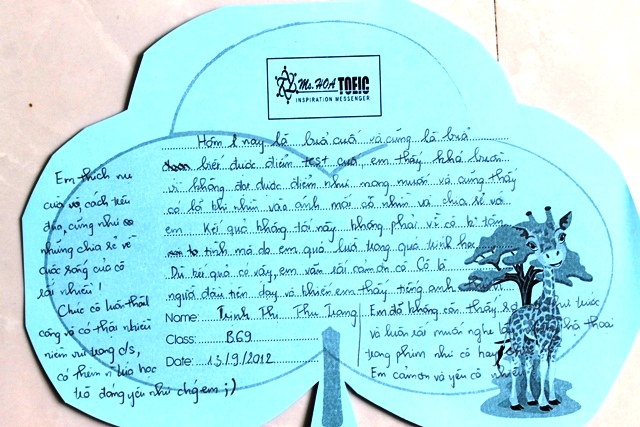 Ms. HOA TOEIC
INSPIRATION MESSENGER
Hôm nay là buổi cuối và cũng là buổi
biết được điểm test cuối, em thấy khá buồn
vì không đạt được điểm như mong muốn và cũng thấy
có lỗi khi nhìn vào ánh mắt cô nhìn và chia sẻ với
em. Kết quả không tốt này không phải vì cô
mà do em quá lười trong quá trình học
Dù kết quả có vậy, em vẫn rất cảm ơn cô. Cô là
người đầu tiên dạy và khiến em thấy tiếng anh
Name: Trịnh Thị Thu Trang
Class: B69
Date: 13/9/2012
Em đã không còn thấy sợ như trước
và luôn rất muốn nghe thoại
trong phim như cô hay
Em cảm ơn và yêu cô nhiều
Em thích nụ
cười và cách
cũng như
những chia sẻ về
cuộc sống của cô
rất nhiều!
Chúc cô luôn thành
công và có thật nhiều
niềm vui trong c/s,
có thêm n lứa học
trò đáng yêu như chúng em ;)